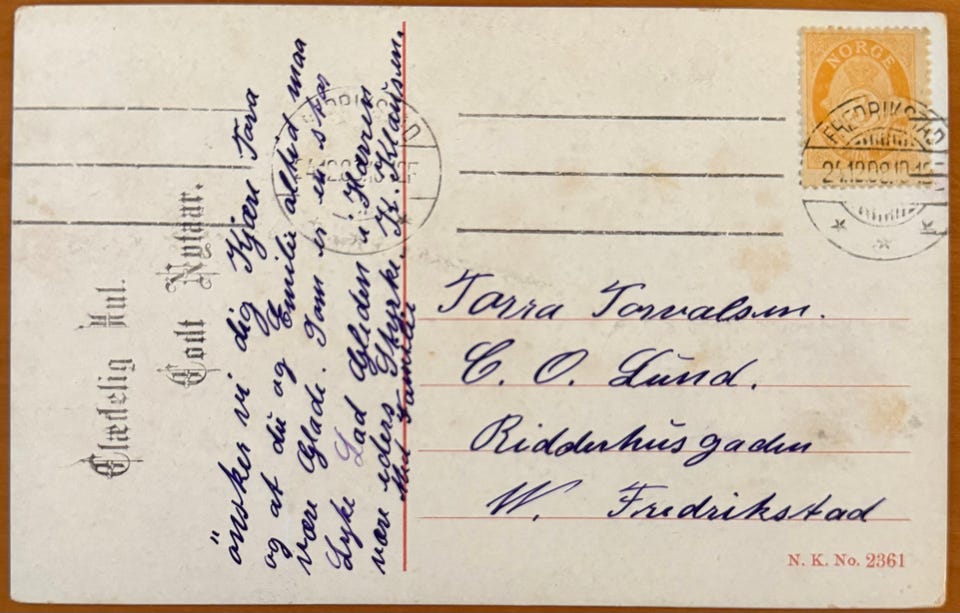 Glædelig Jul.
Godt Nytaar.
önsker vi dig Kjære Tora
og at du og Emilie altid maa
være Glade. Som er en stor
Lyke Lad Gleden i Herren
være eders Styrke. H. Klausen.
Med Familie
NORGE
FREDRIKSTAD
24.12.08.10-1
Torra Torvalsen.
C. O. Lund.
Ridderhusgaden
W. Fredrikstad
N. K. No. 2361